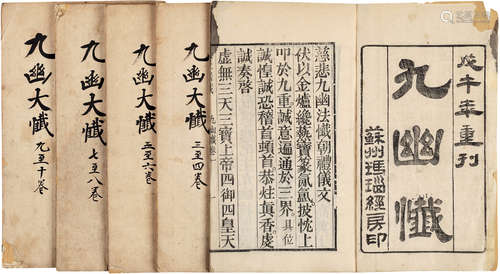 戊午年重刊
九幽懺
蘇州瑪瑙經房印
慈悲九幽法懺朝禮儀文
伏以金爐纔爇寶篆氤氳披悃上
叩於九重誠意遍通於三界具位
誠惶誠恐稽首頓首恭炷眞香虔
誠奏啓
虛無三天三寶上帝四御四皇天
九幽大懺
三至四卷
九幽大懺
五至六卷
九幽大懺
七至八卷
九幽大懺
九至十卷